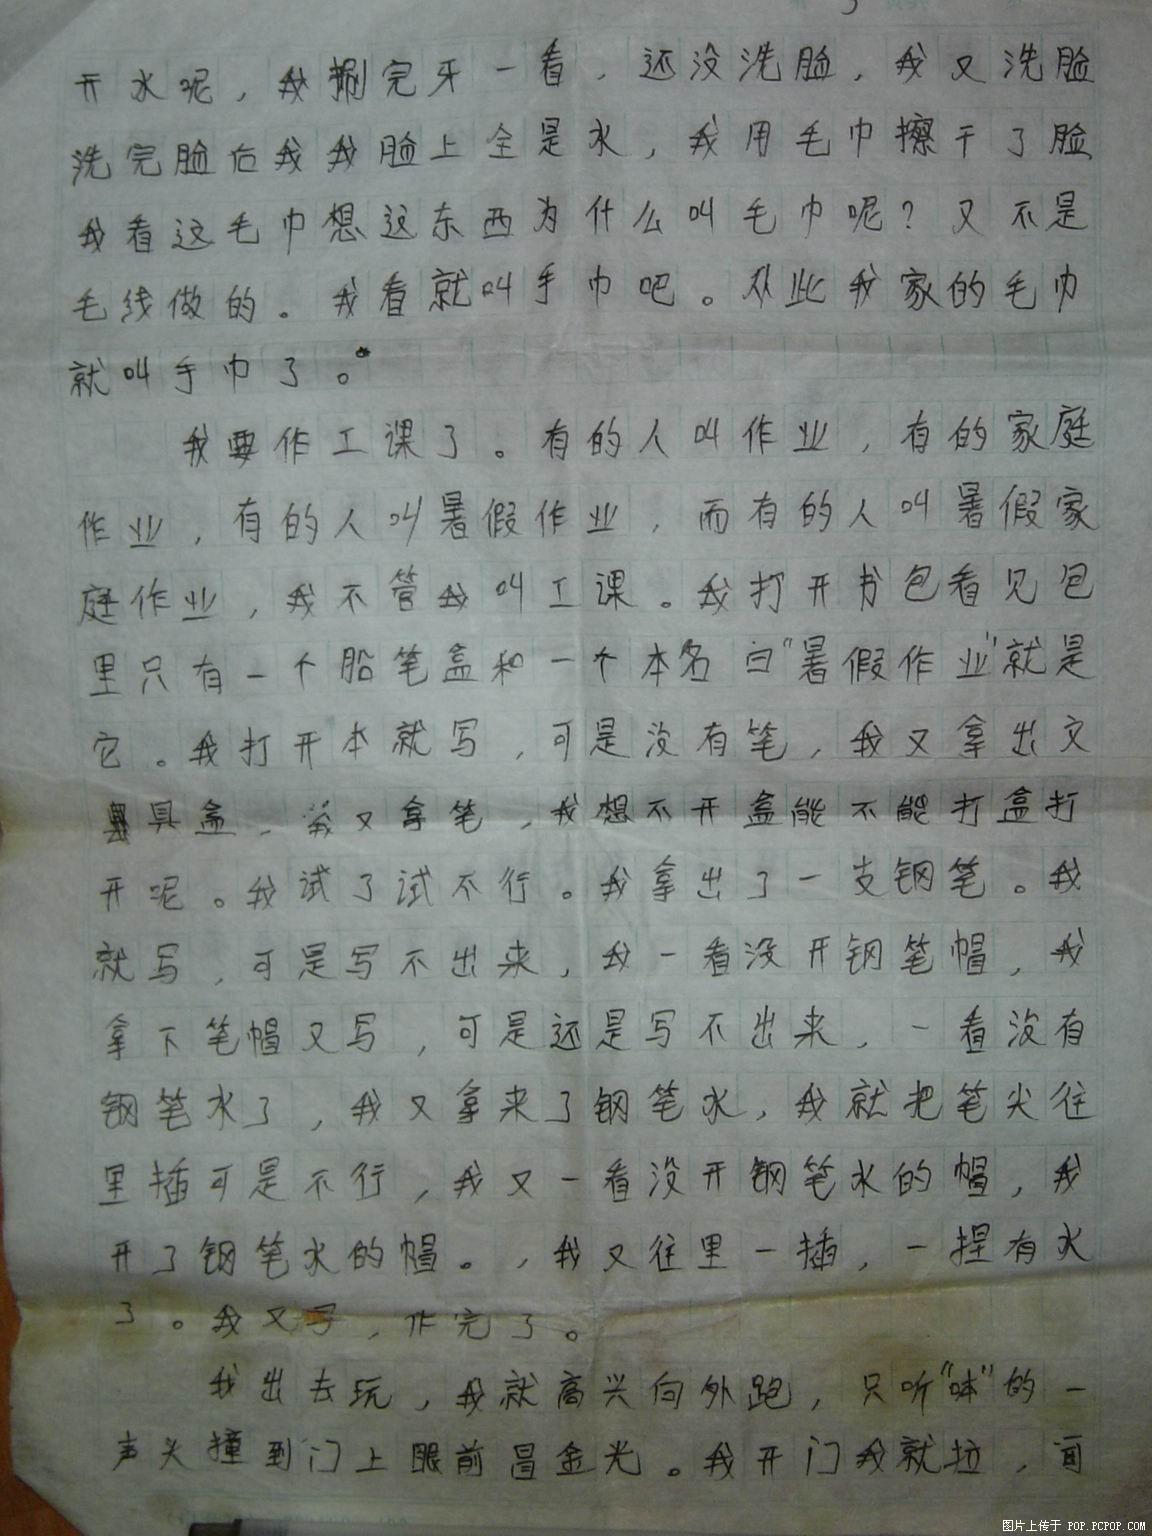 开水呢，我刷完牙一看，还没洗脸，我又洗脸
洗完脸后我我脸上全是水，我用毛巾擦干了脸
我看这毛巾想这东西为什么叫毛巾呢？又不是
毛线做的。我看就叫手巾吧。从此我家的毛巾
就叫手巾了。
我要作工课了。有的人叫作业，有的家庭
作业，有的人叫暑假作业，而有的人叫暑假家
庭作业，我不管我叫工课。我打开书包看见包
里只有一个船笔盒和一个本名曰“暑假作业”就是
它。我打开本就写，可是没有笔，我又拿出文
具盒，我又拿笔，我想不开盒能不能打盒打
开呢。我试了试不行。我拿出了一支钢笔。我
就写，可是写不出来，我一看没开钢笔帽，我
拿下笔帽又写，可是还是写不出来，一看没有
钢笔水了，我又拿来了钢笔水，我就把笔尖往
里插可是不行，我又一看没开钢笔水的帽，我
开了钢笔水的帽。，我又往里一插，一捏有水
了。我又写，作完了。
我出去玩，我就高兴向外跑，只听“咔”的一
声头撞到门上眼前冒金光。我开门我就拉，
图片上传于 POP.PCPOP.COM